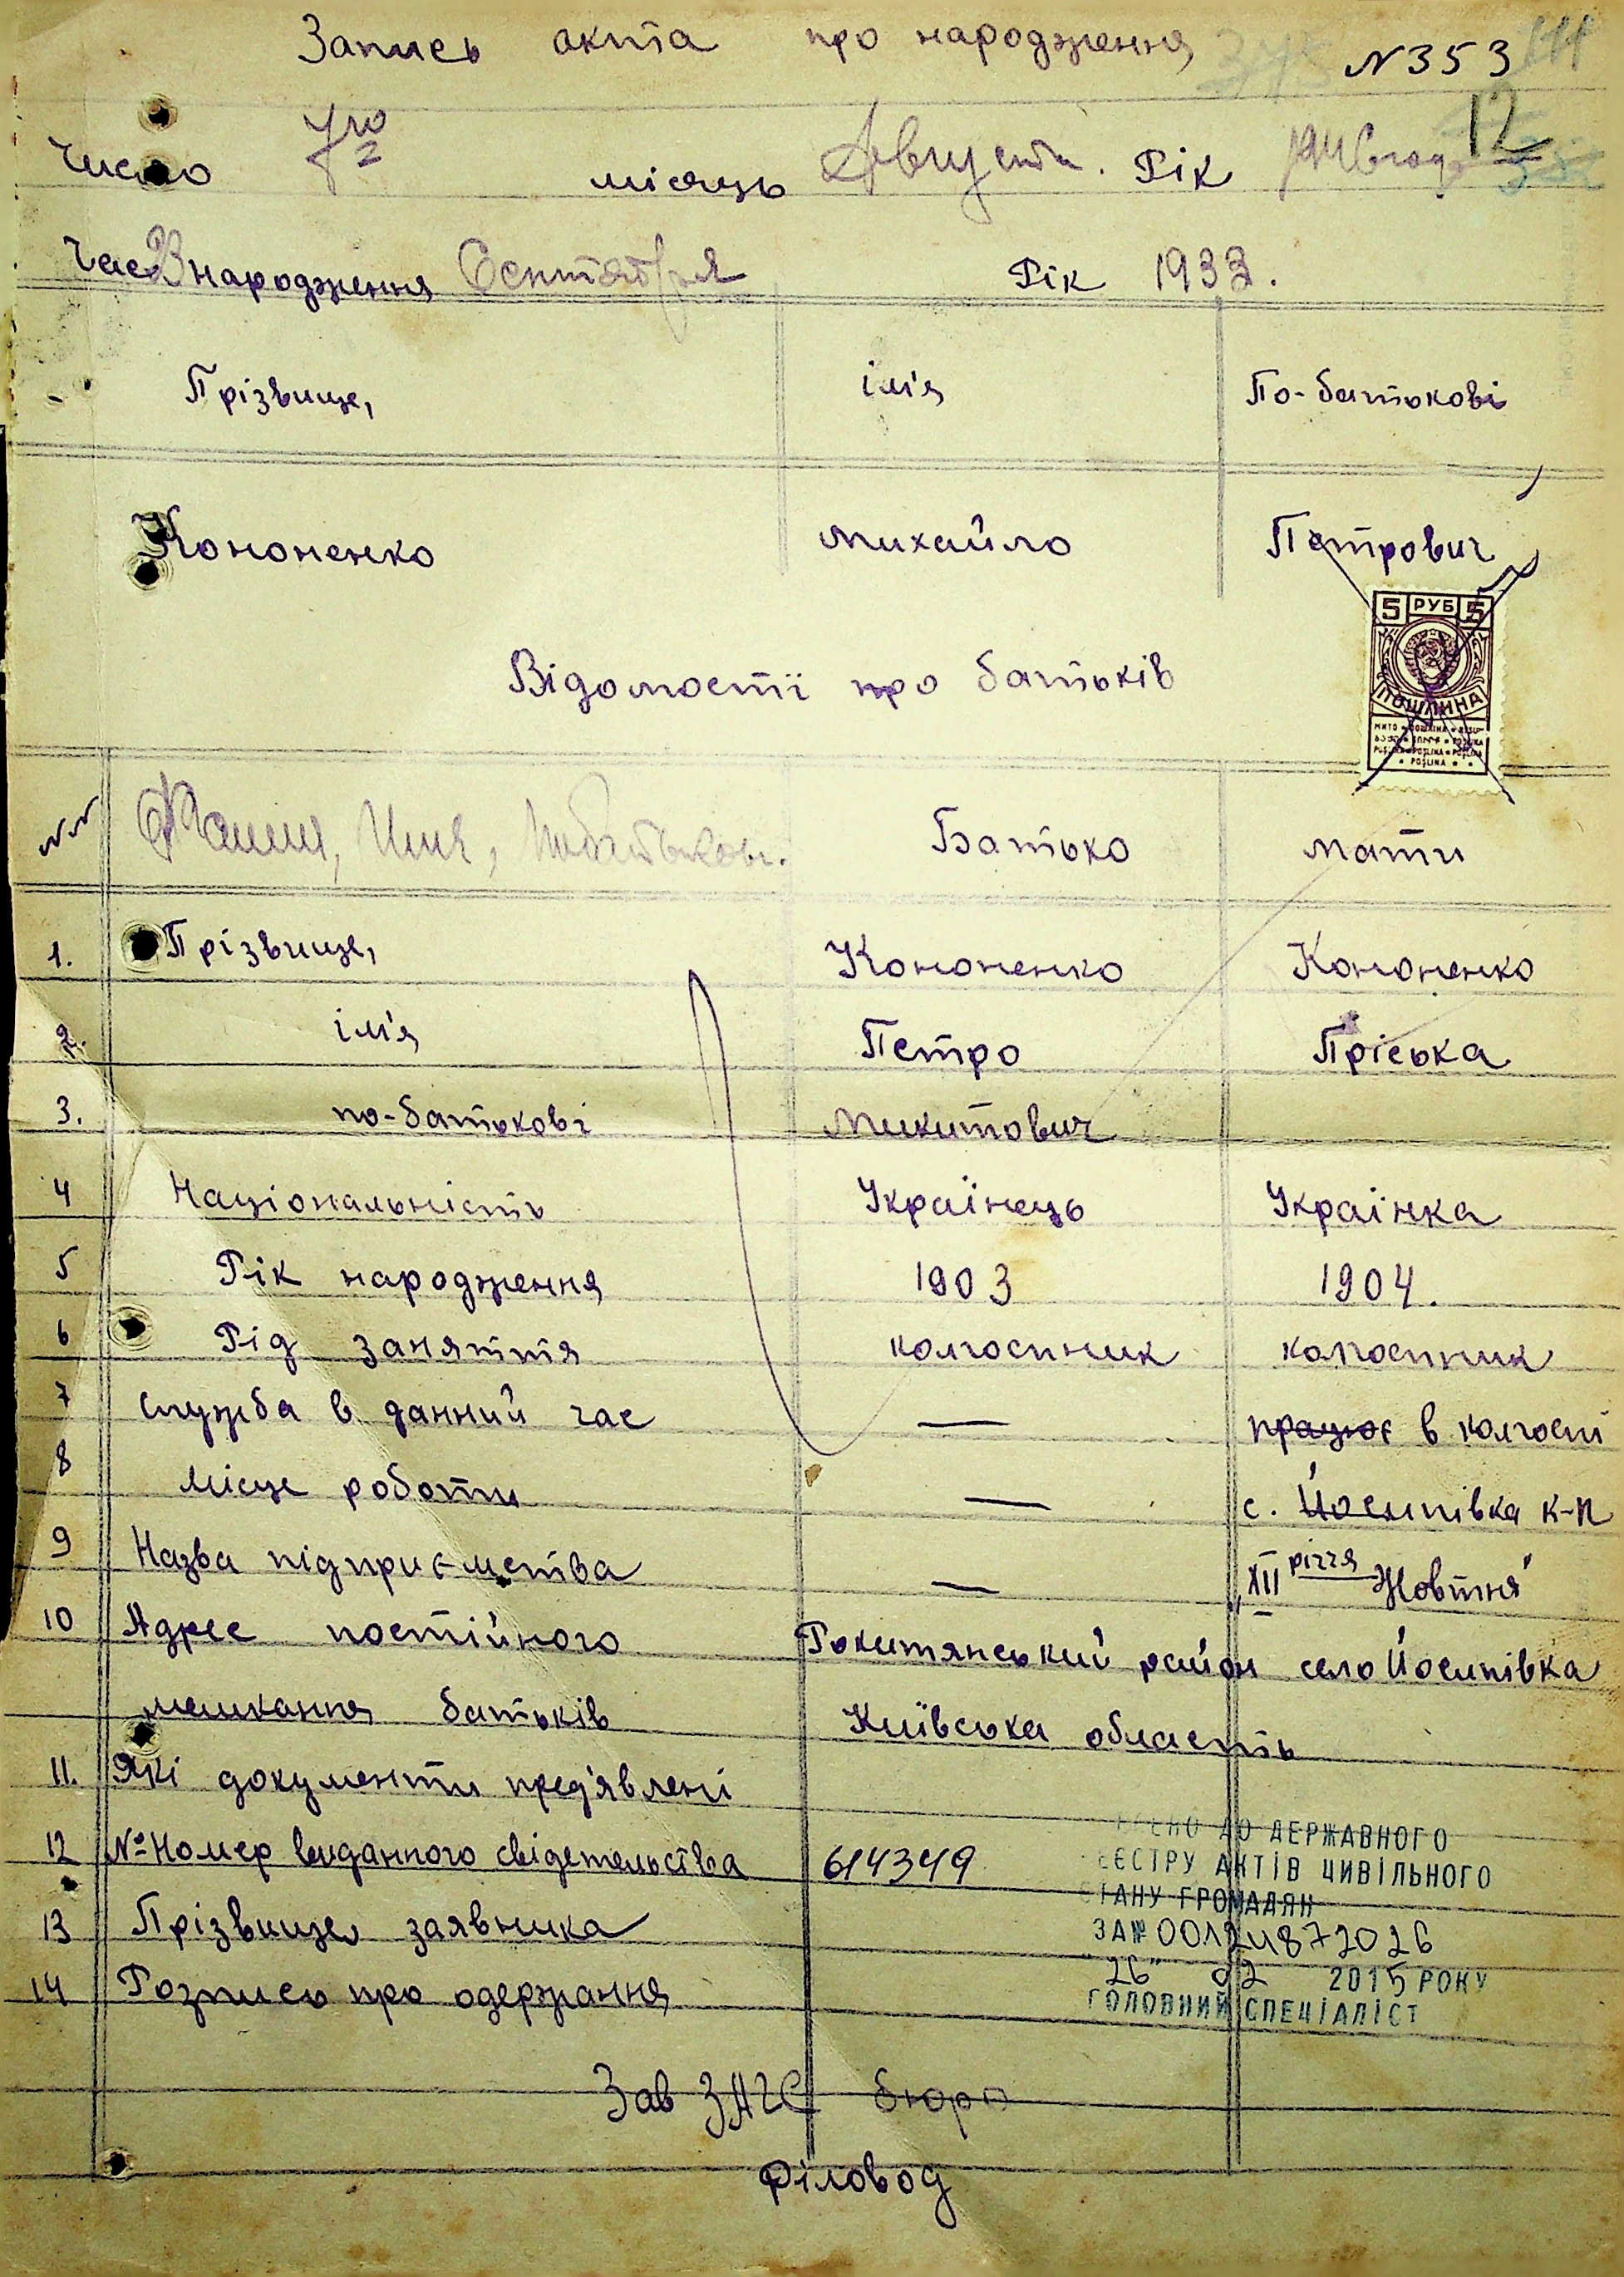 Запись акта про народження N 353
12
Число 7го місяць Августа. Рік
Час народження Сентября Рік 1933.
Прізвище, ім'я По-батькові
Кононенко Михайло Петрович
5 РУБ 5
ПОШЛИНА
Відомості про батьків
NN Фамилия, Имя, Побатькові. Батько мати
1. Прізвище, Кононенко Кононенко
2. ім'я Петро Пріська
3. по-батькові Микитович
4 Національність Українець Українка
5 Рік народження 1903 1904.
6 Рід заняття колгоспник колгоспник
7 Служба в данний час — працює в колгоспі
8 Місце роботи — с. Йосипівка к-п
9 Назва підприємства — XII річчя Жовтня
10 Адрес постійного Рокитянський район село Йосипівка
мешкання батьків Київська область
11. Які документи пред'явлені
12 № Номер виданного свідетельства 614349
13 Прізвище заявника
14 Розпись про одержання
ДО ДЕРЖАВНОГО
РЕЄСТРУ АКТІВ ЦИВІЛЬНОГО
СТАНУ ГРОМАДЯН
ЗА № 00124872026
"26" 02 2015 РОКУ
ГОЛОВНИЙ СПЕЦІАЛІСТ
Зав ЗАГС бюро
Діловод